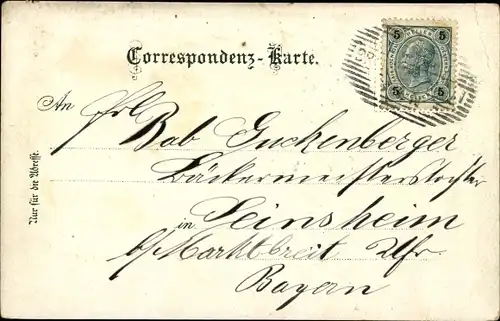 Correspondenz-Karte.
An Frl.
Bab Guckenberger
Bäckermeisterstochter
in Seinsheim
b/Marktbreit Ufr.
Bayern
Nur für die Adresse.
5 5
5 5